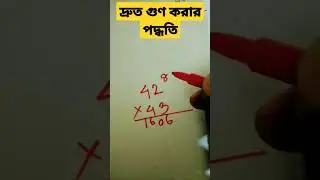 দ্রুত গুণ করার
পদ্ধতি
8
42
×43
1606